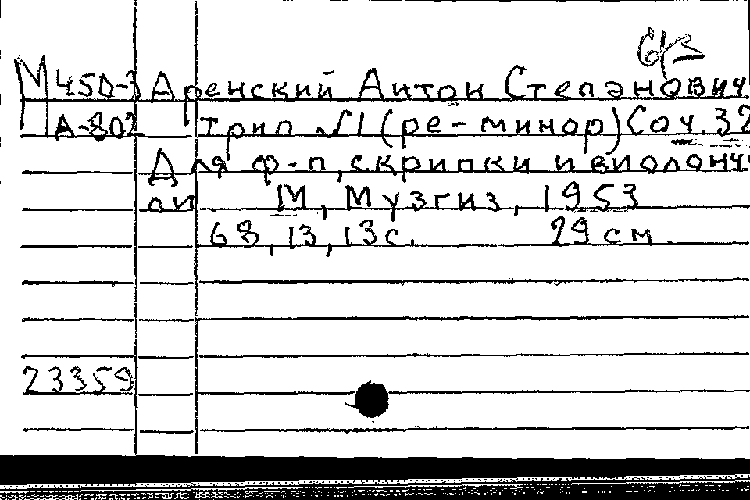 б/з
М 450-3 Аренский Антон Степанович
А-802 Трио №1 (ре-минор) Соч. 32
Для ф-п, скрипки и виолонч
ли М, Музгиз, 1953
68, 13, 13с. 29 см.
23359